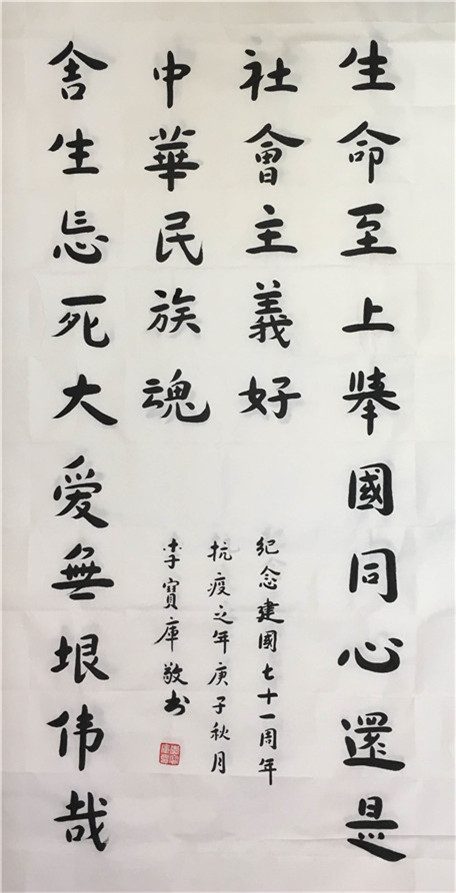 生命至上舉國同心還是
社會主義好
舍生忘死大爱無垠伟哉
中華民族魂
紀念建國七十一周年
抗疫之年庚子秋月
李寶庫敬书